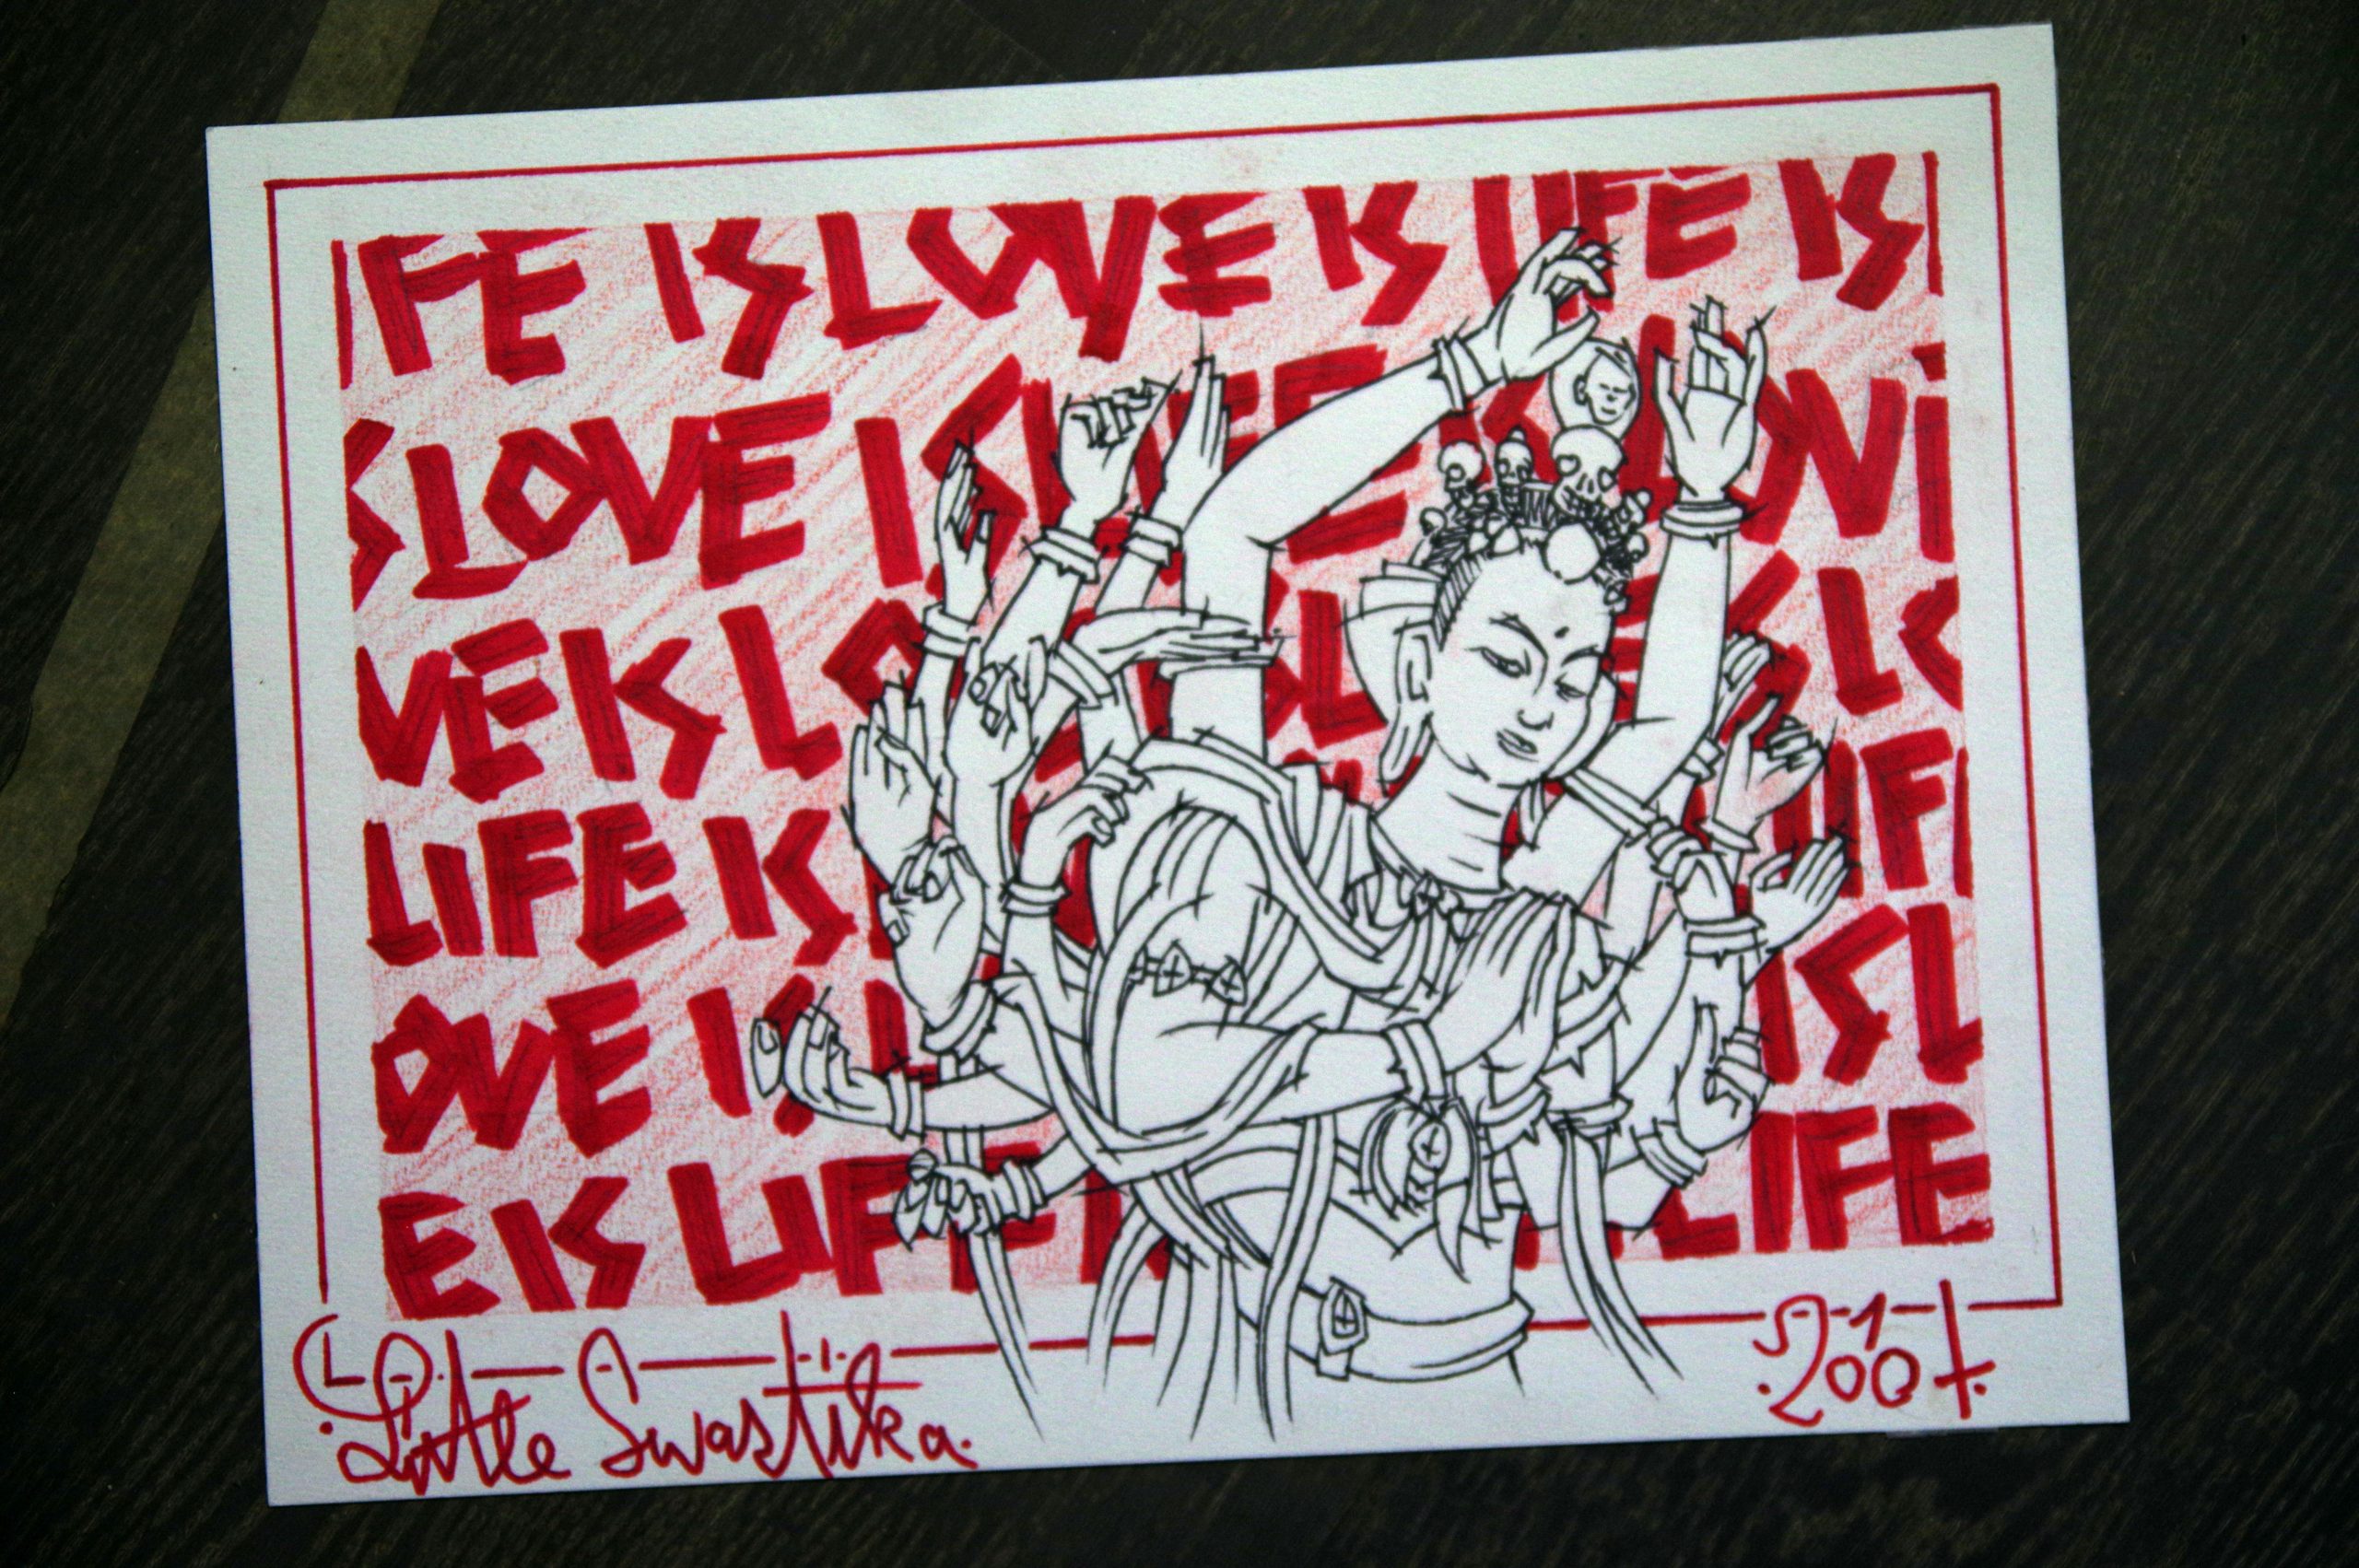 IFE IS LOVE IS LIFE IS L
S LOVE IS LIFE IS LOVE I
VE IS LO SL E IS LO
LIFE IS LIFE
OVE IS L IS L
E IS LIFE I LIFE
Little Swastika.
2007